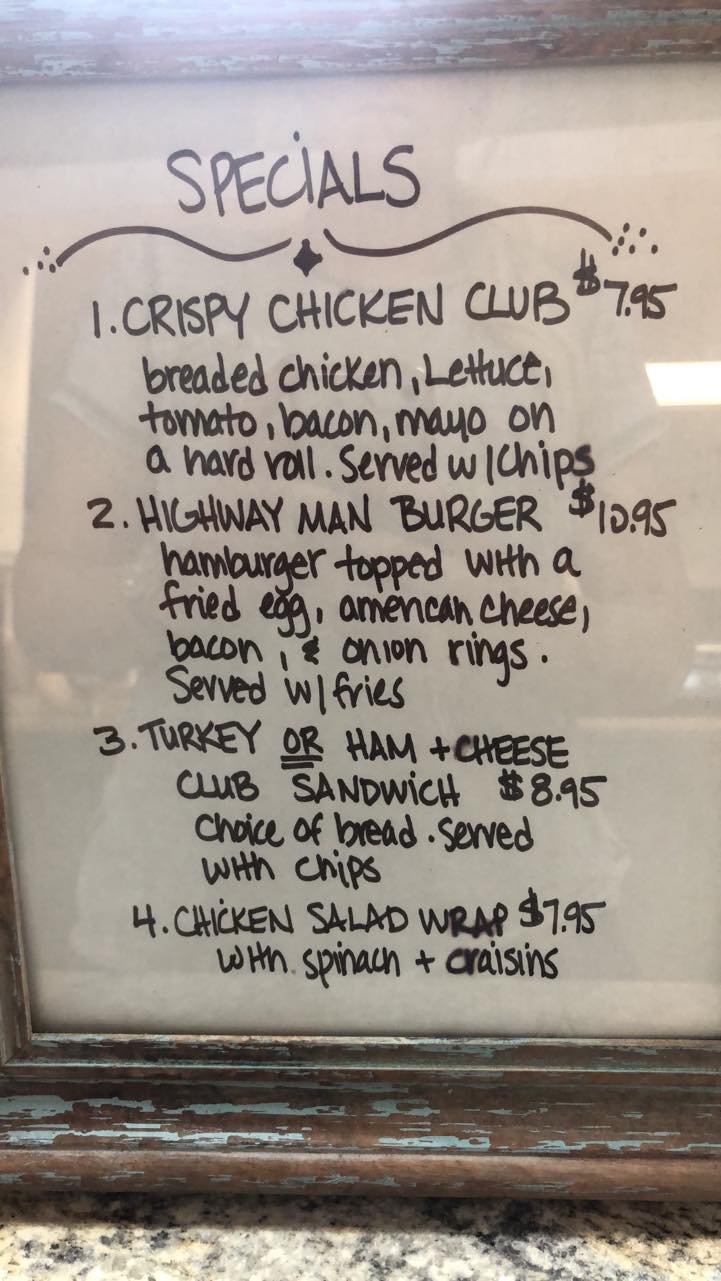 SPECIALS
1. CRISPY CHICKEN CLUB $7.95
breaded chicken, Lettuce,
tomato, bacon, mayo on
a hard roll. Served w/Chips
2. HIGHWAY MAN BURGER $10.95
hamburger topped with a
fried egg, american cheese,
bacon, & onion rings.
Served w/fries
3. TURKEY OR HAM + CHEESE
CLUB SANDWICH $8.95
Choice of bread. Served
with chips
4. CHICKEN SALAD WRAP $7.95
with spinach + craisins